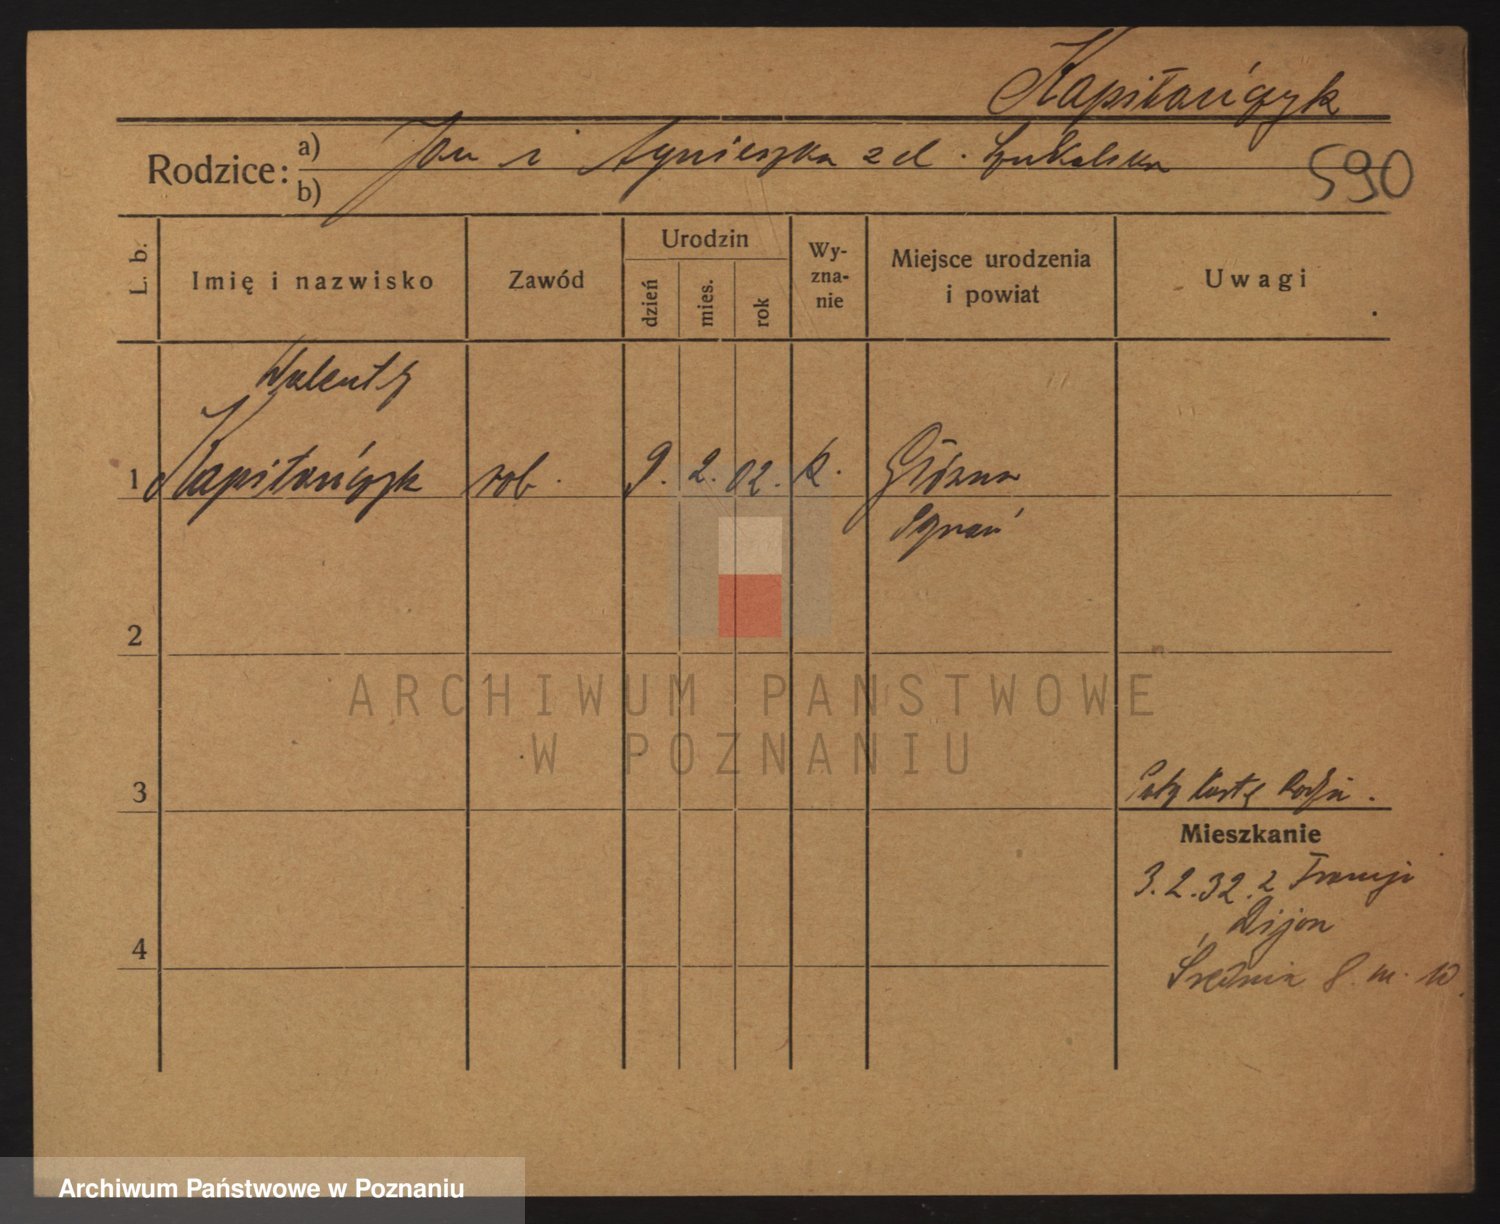 Kapitańczyk
Rodzice: a) Jan i Agnieszka z d.
b)
590
L. b.
Imię i nazwisko
Zawód
Urodzin
dzień
mies.
rok
Wy-
zna-
nie
Miejsce urodzenia
i powiat
Uwagi
Walenty
1 Kapitańczyk rob. 9. 2. 02. k. Główna
2
ARCHIWUM PAŃSTWOWE
W POZNANIU
3
kartę
Mieszkanie
3.2.32. z Francji
Dijon
4
Średnia 8. m. 10.
Archiwum Państwowe w Poznaniu